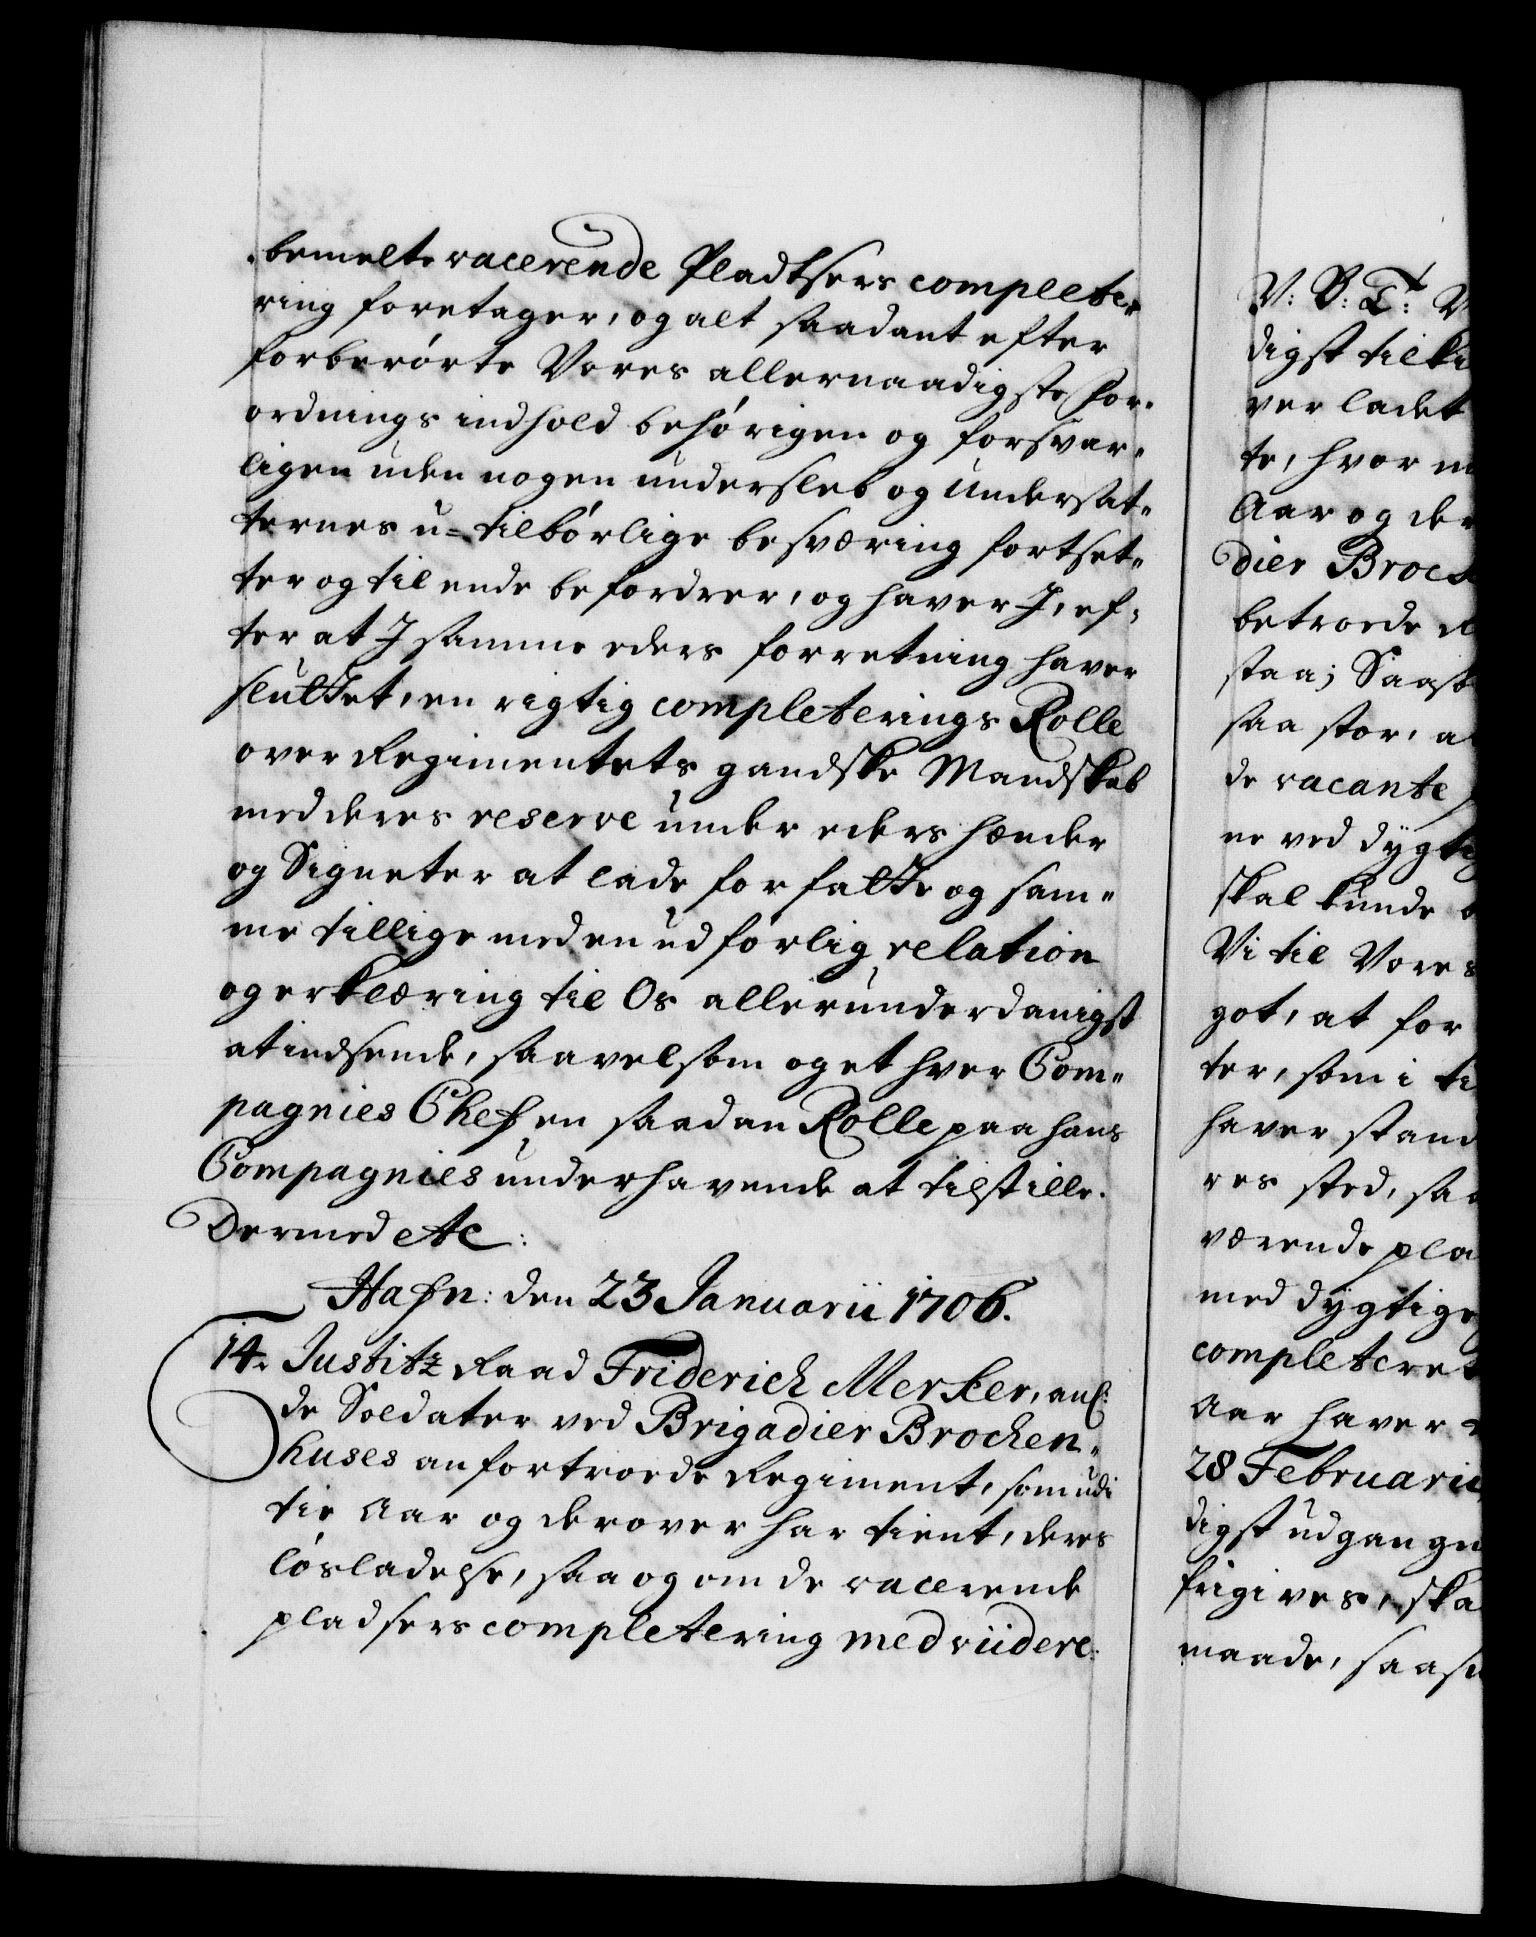 bemelte vacerende Pladtsers complete„
ring foretager, og alt saadant efter
forberørte Vores allernaadigste for„
ordnings indhold behørigen og forsvar„
ligen uden nogen undersleb og undersat„
ternes u=tilbørlige besværing fortset„
ter og til ende befordrer, og haver I, ef„
ter at I samme eders forretning haver
sluttet, en rigtig completerings Rolle
over Regimentets gandske Mandskab
med deres reserve under eders hænder
og Signeter at lade forfatte og sam„
me tillige med en udførlig relation
og erklæring til Os allerunderdanigst
at indsende, saavelsom og et hver Com„
pagnies Chef en saadan Rolle paa hans
Compagnies underhavende at tilstille.
Dermed etc:
Hafn: den 23 Januarii 1706.
14. Justitz Raad Friderich Merker, anl:
de Soldater ved Brigadier Brocken„
huses anfortroede Regiment, som udi
tie Aar og derover har tient, deres
løsladelse, saa og om de vacerende
pladsers completering med viidere.
V: G: T: V
digst tilki
ver ladet
te, hvor m
Aar og der
dier Brock
betroede R
staa; Saasom
saa stor, a
de vacante p
ne ved dygtig
skal kunde b
Vi til Vores
got, at for
ter, som i ti
haver stand
res sted, saa
værende pla
med dygtige
completeret
Aar haver
28 Februarii
digst udgangne
frigives, ska
maade, saasom